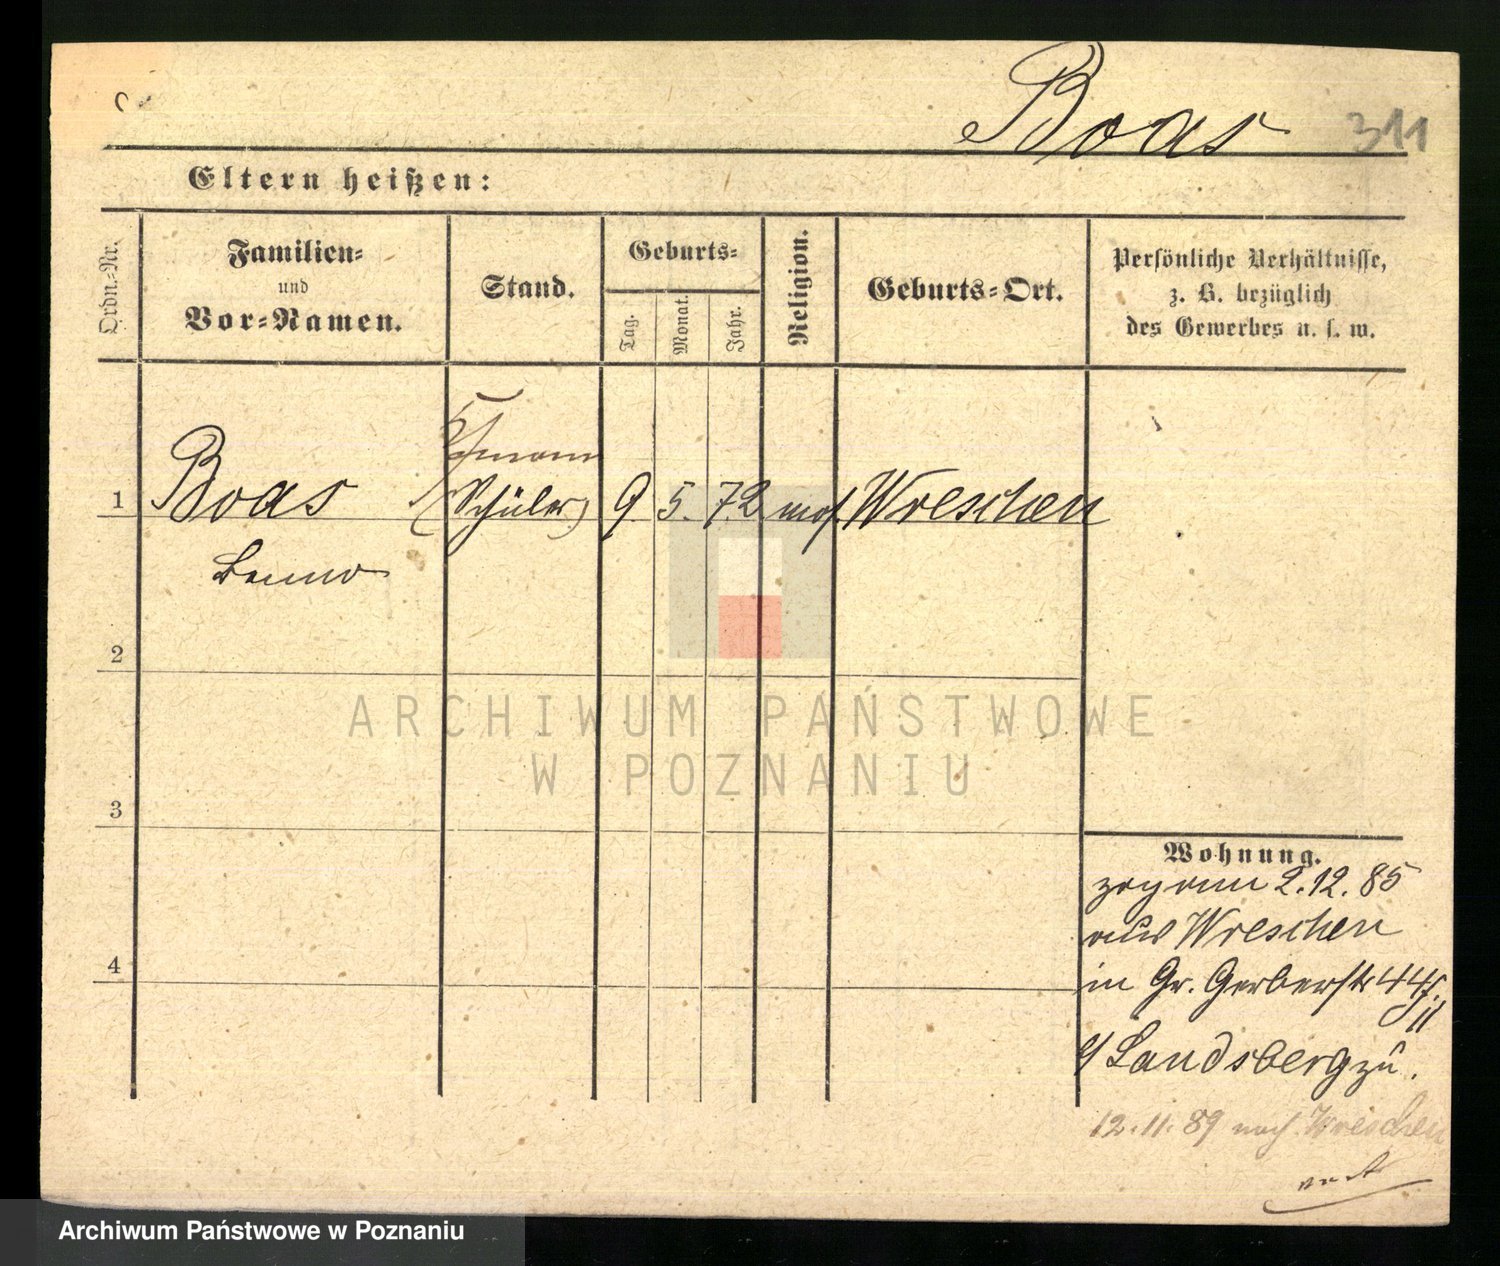 Boas 311
Eltern heißen:
Ordn.-Nr.
Familien-
und
Vor-Namen.
Stand.
Geburts-
Tag.
Monat.
Jahr.
Religion.
Geburts-Ort.
Persönliche Verhältnisse,
z. B. bezüglich
des Gewerbes u. s. w.
Kfmann
1 Boas (Schüler) 9. 5. 72 mos. Wreschen
Benno
2
3
4
Wohnung.
zog am 2.12.85
aus Wreschen
in Gr. Gerberstr 44
II
b/ Landsberg zu.
12.11.89 nach Wreschen
ARCHIWUM PAŃSTWOWE
W POZNANIU
Archiwum Państwowe w Poznaniu